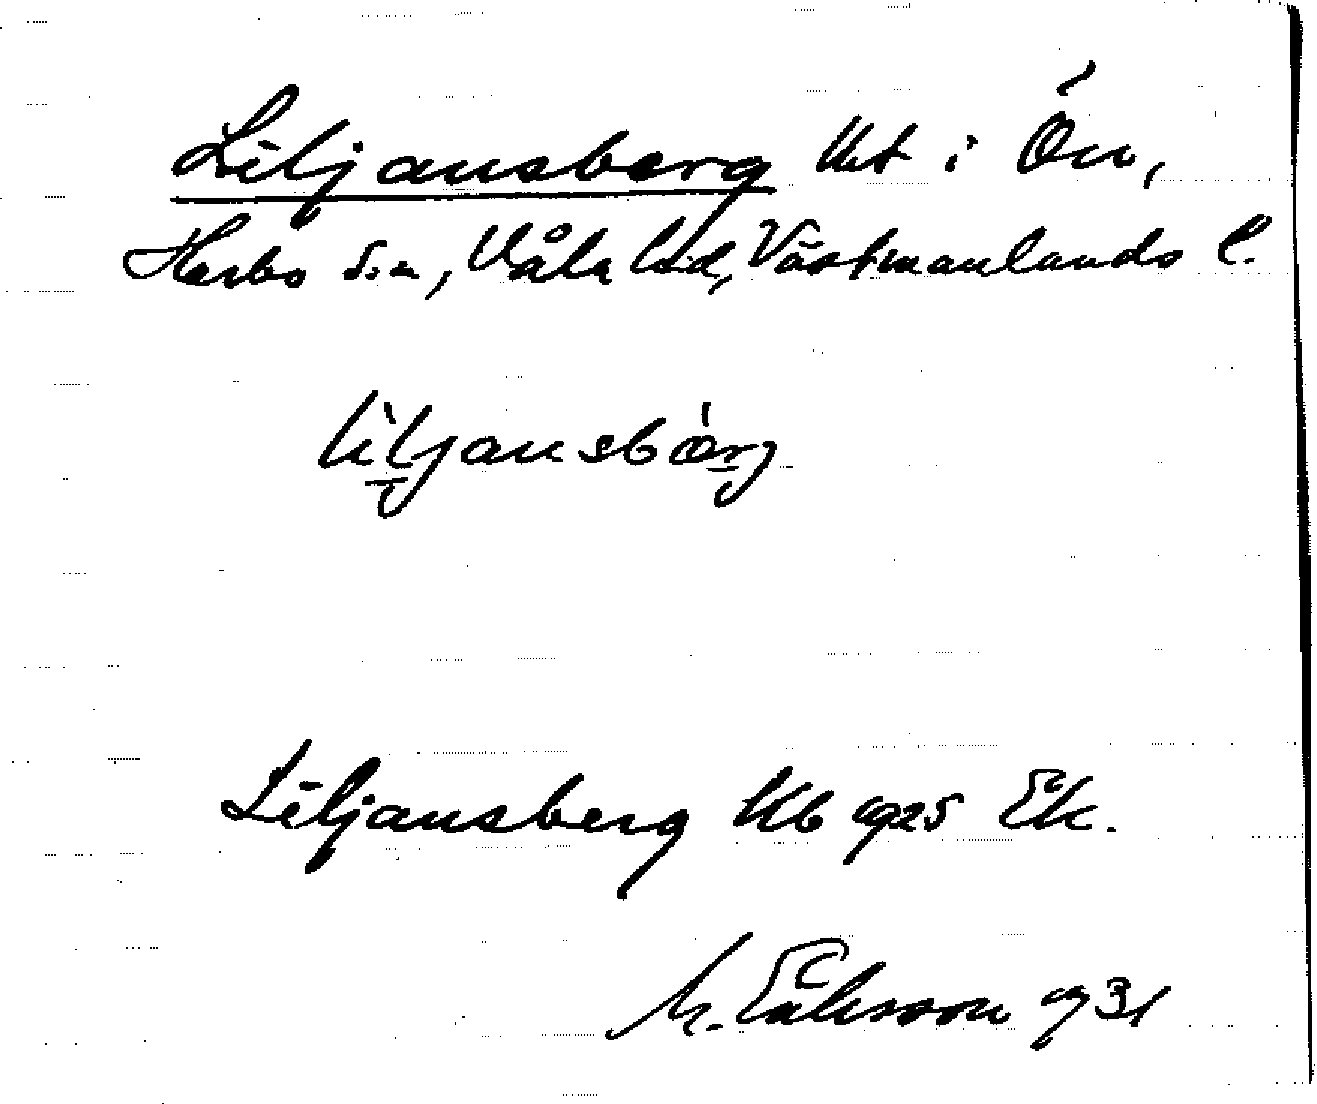 Liljansberg lht i Ön,
Harbo sn, Våla hd, Västmanlands l.
lìljansbärj
Liljansberg Kb 1925 Ek.
M. Eriksson 1931